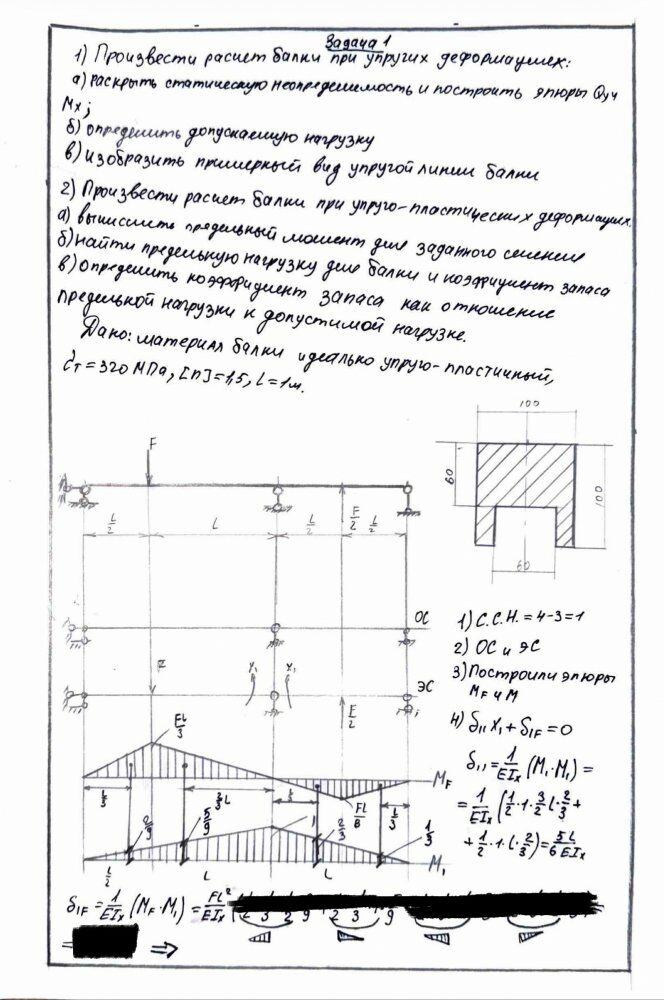 Задача 1
1) Произвести расчет балки при упругих деформациях:
а) раскрыть статическую неопределимость и построить эпюры Qy и
Mx;
б) определить допускаемую нагрузку
в) изобразить примерный вид упругой линии балки
2) Произвести расчет балки при упруго-пластических деформациях.
а) вычислить предельный момент для заданного сечения
б) найти предельную нагрузку для балки и коэффициент запаса
в) определить коэффициент запаса как отношение
предельной нагрузки к допустимой нагрузке.
Дано: материал балки идеально упруго-пластичный,
σт = 320 МПа, [n] = 1,5, L = 1 м.
F
L/2 L L/2 F/2 L/2
100
60
100
60
ОС
1) С.С.Н. = 4-3=1
2) ОС и ЭС
F X1 X1 ЭС
F/2
3) Построили эпюры
MF и M
4) δ11 X1 + δ1F = 0
FL/3
MF
δ11 = 1/EIx (M1·M1) =
L/3 2/3 L L/3 FL/8 L/3
= 1/EIx (1/2·1·3/2 L·2/3 +
+ 1/2·1·L·2/3) = 5/6 L/EIx
2/9 5/9 1 2/3 1/3
M1
L/2 L L
δ1F = 1/EIx (MF·M1) = FL²/EIx (
2 3 2 9 2 3 9
= ⇒